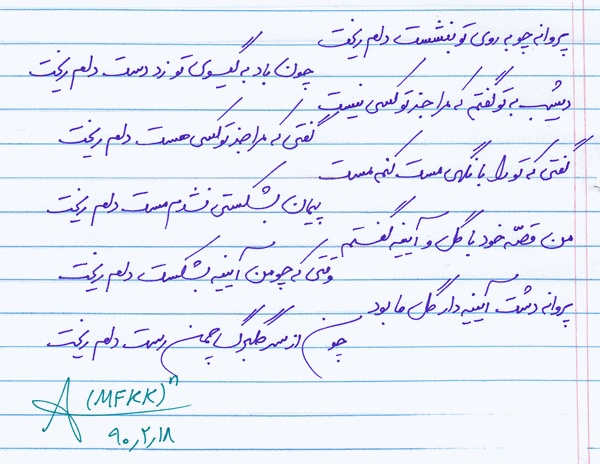 پروانه چو به روی تو بنشست دلم ریخت
چون باد به گیسوی تو زد دست دلم ریخت
دیشب به تو گفتم که مرا جز تو کسی نیست
گفتی که مرا جز تو کسی هست دلم ریخت
گفتی که تو را با نگهی مست کنم مست
پیمان بشکستی نشدم مست دلم ریخت
من قصّه خود با گل و آیینه گفتم
وقتی که چو من آیینه بشکست دلم ریخت
پروانه دشت آیینه دار گل ما بود
چون از سر گلبرگ چمن رست دلم ریخت
(MFKK)ⁿ
۹۰٫۲٫۱۸